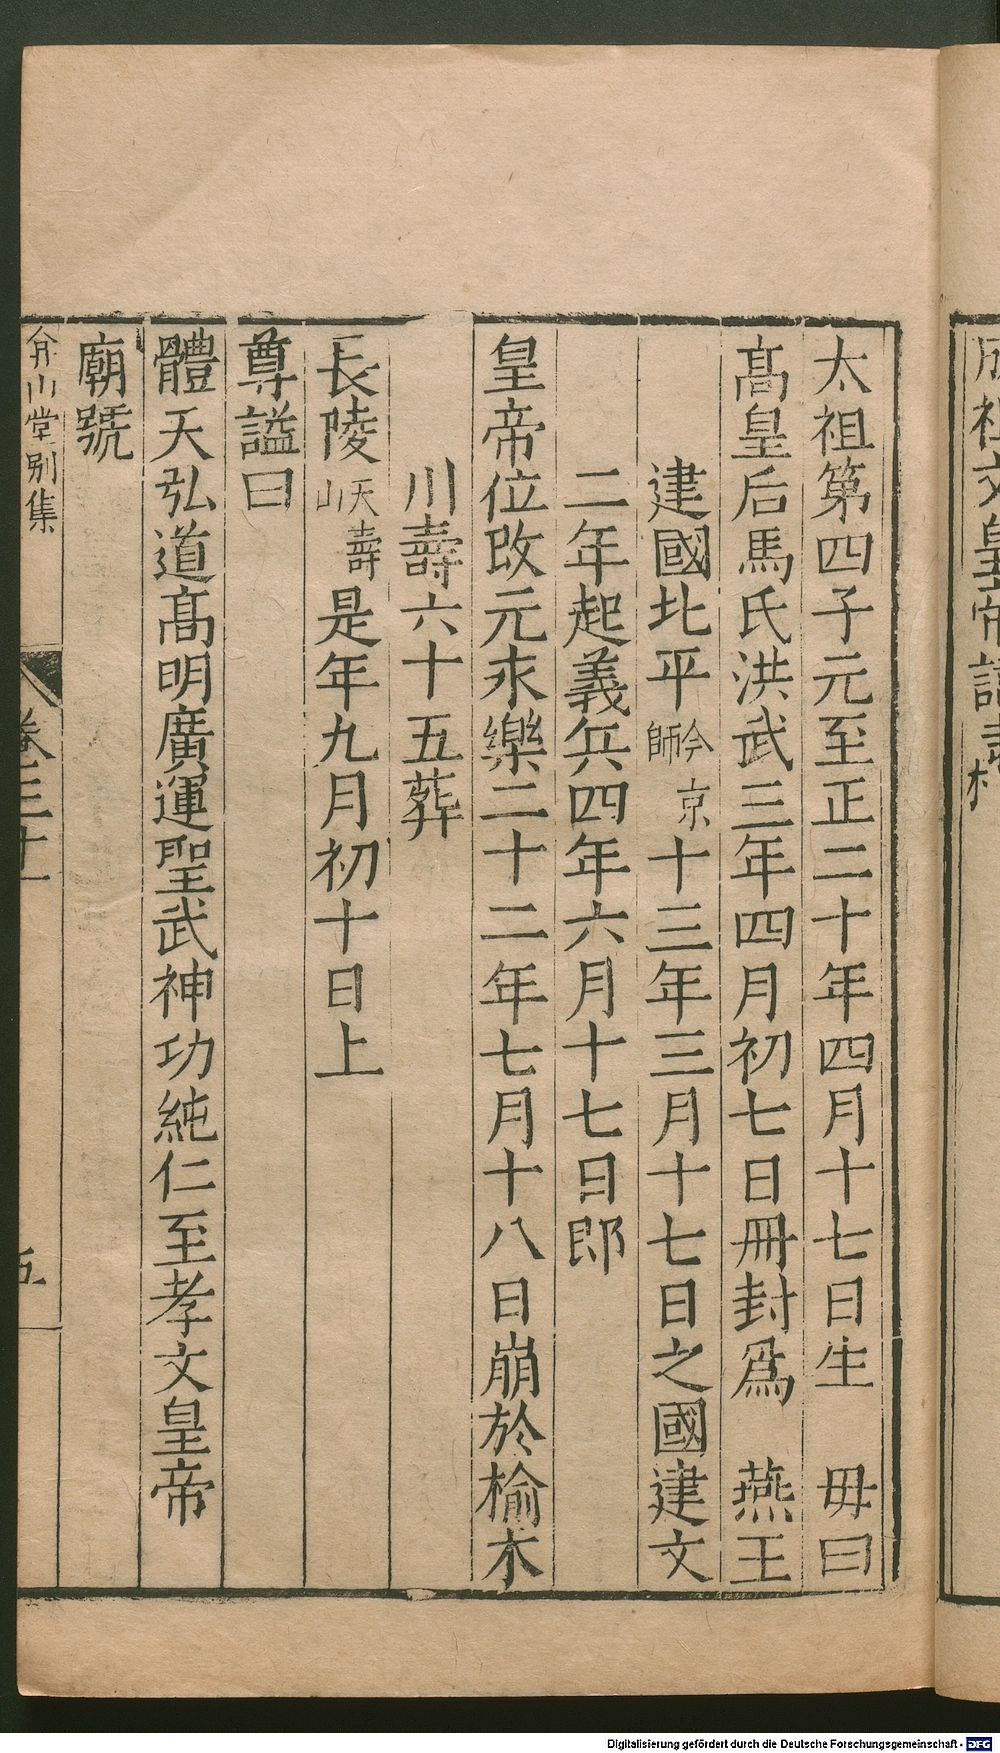 成祖文皇帝
太祖第四子元至正二十年四月十七日生　毋曰
髙皇后馬氏洪武三年四月初七日冊封爲　燕王
建國北平今京師十三年三月十七日之國建文
二年起義兵四年六月十七日郎
皇帝位改元永樂二十二年七月十八日崩於榆木
川壽六十五葬
長陵天壽山是年九月初十日上
尊謚曰
體天弘道髙明廣運聖武神功純仁至孝文皇帝
廟號
弇山堂别集
卷三十一
五
Digitalisierung gefördert durch die Deutsche Forschungsgemeinschaft - DFG